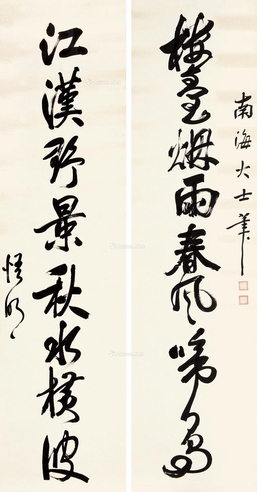 南海大士筆
樓臺烟雨春風啼鳥
江漢野景秋水橫波
悟明